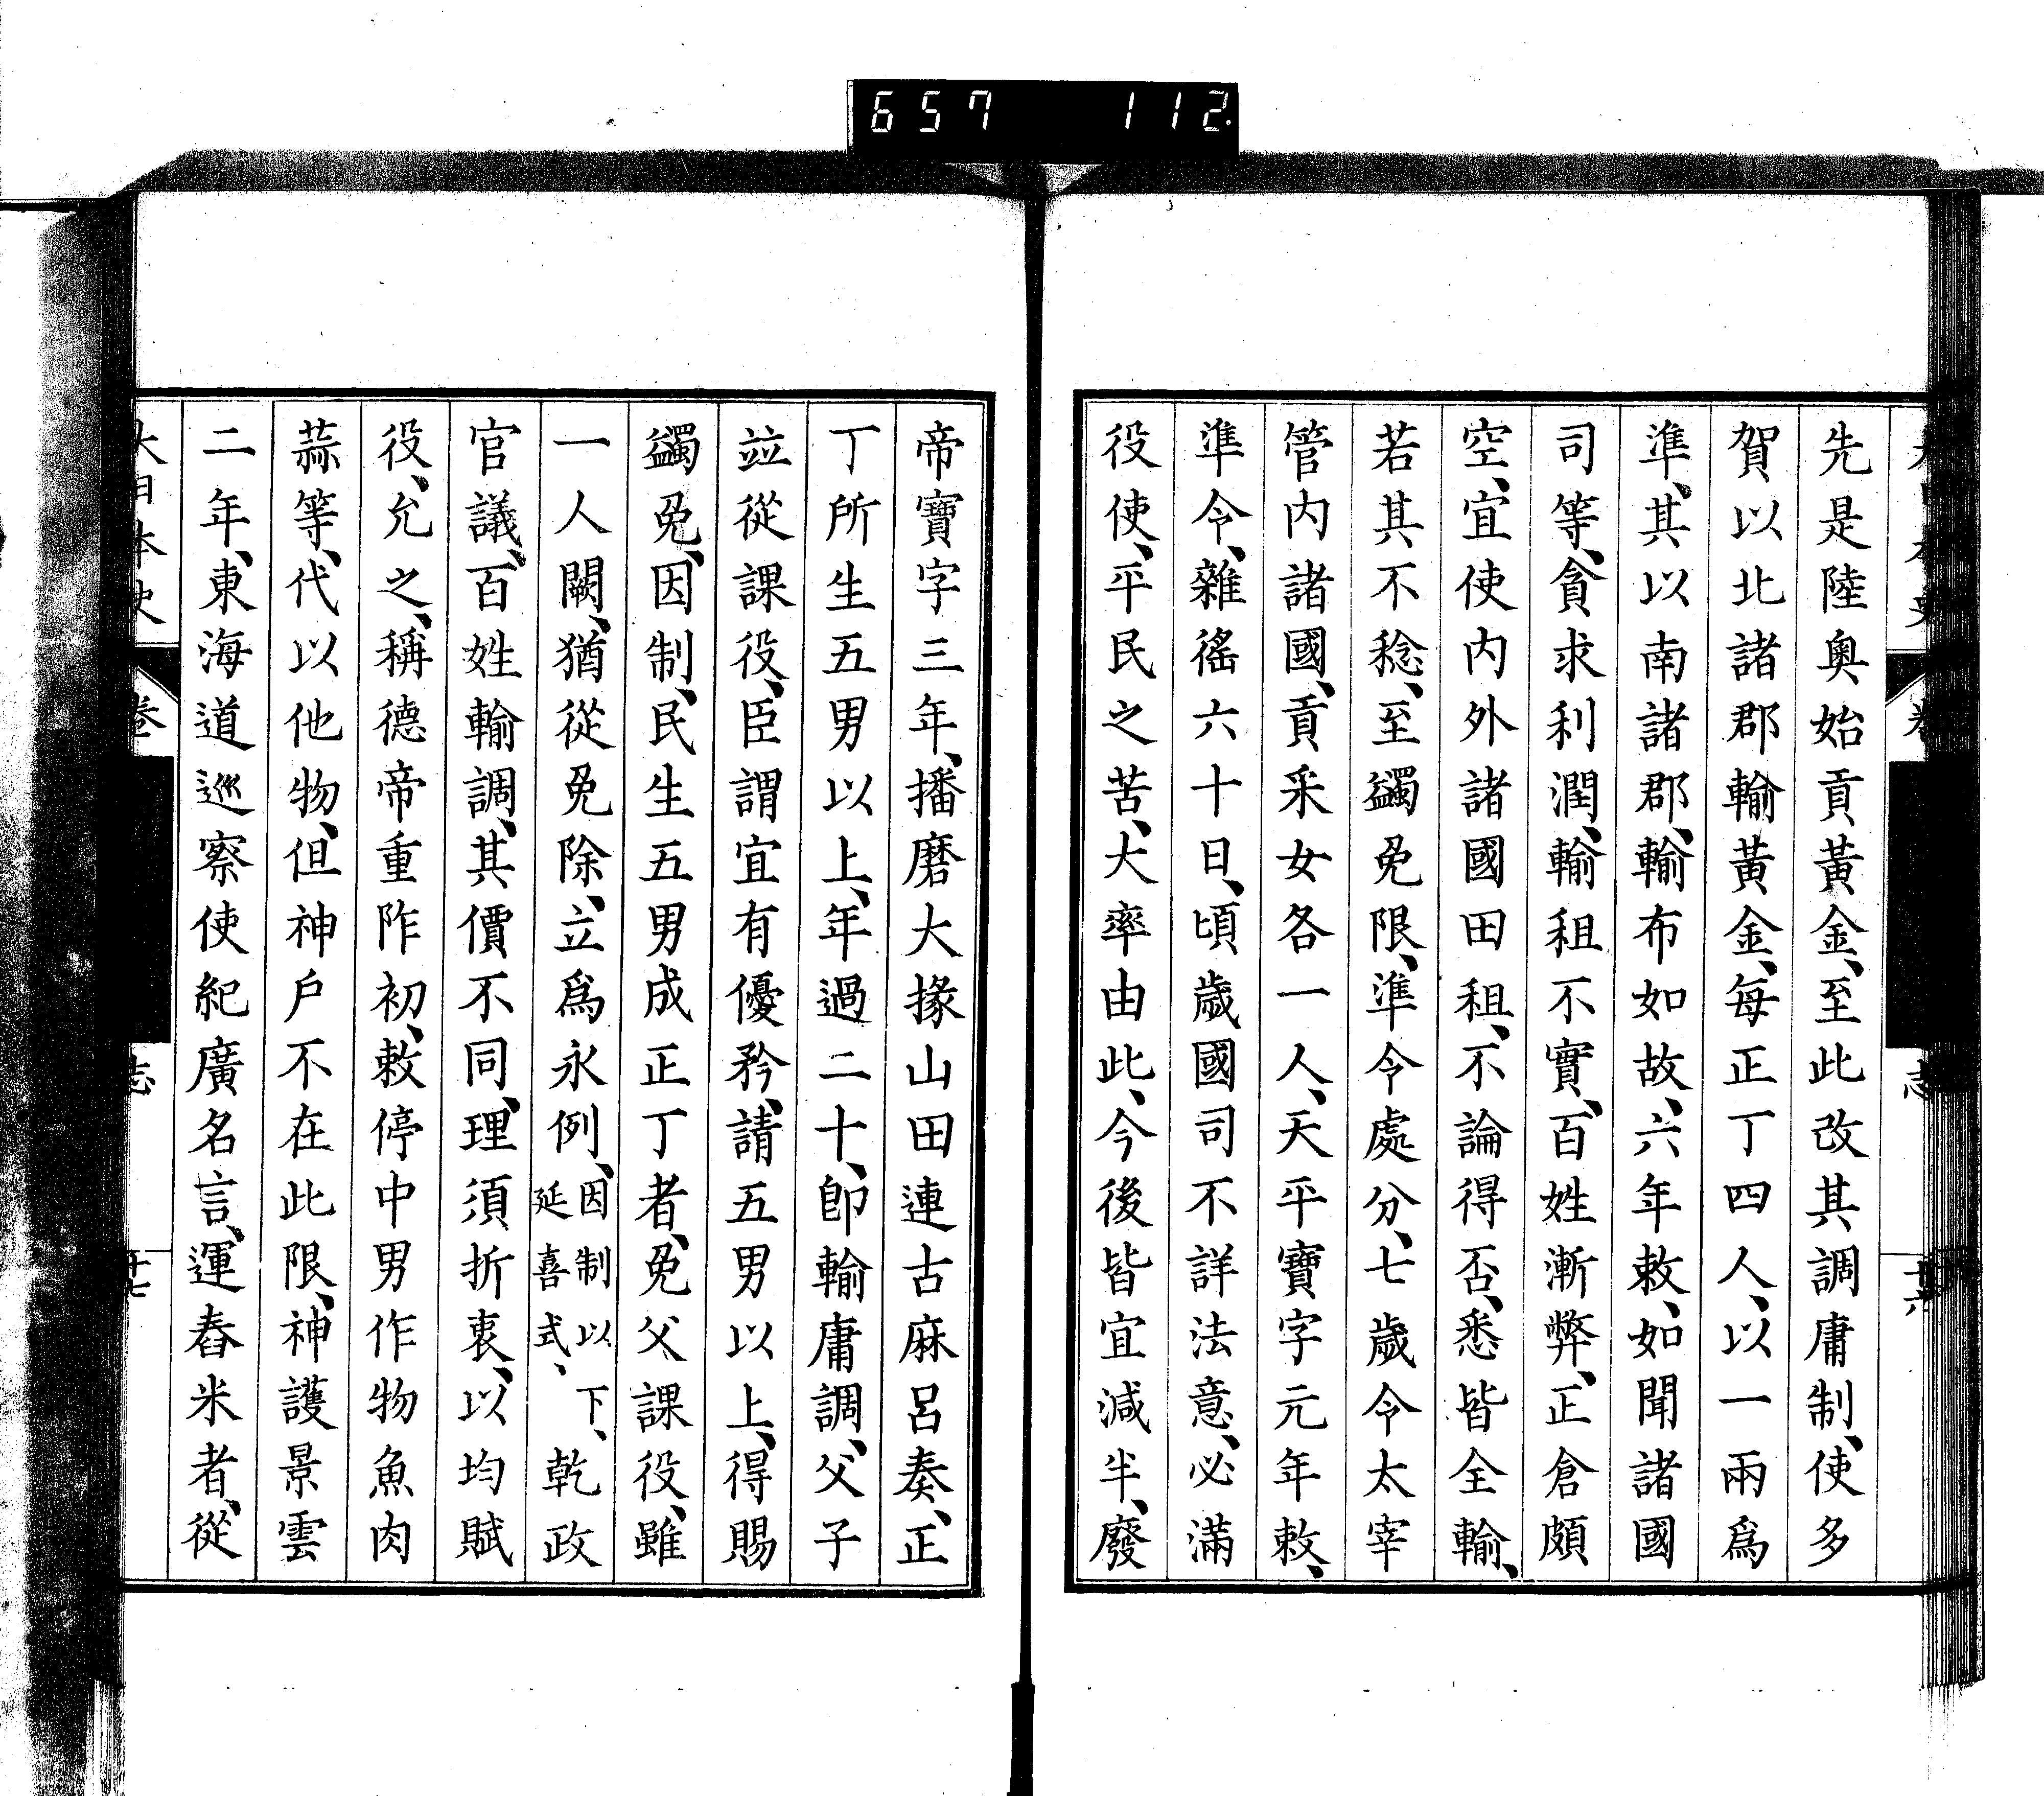 657 112
先是陸奧始貢黃金、至此改其調庸制、使多
賀以北諸郡輸黃金、每正丁四人、以一兩爲
準、其以南諸郡、輸布如故、六年敕、如聞諸國
司等、貪求利潤、輸租不實、百姓漸弊、正倉頗
空、宜使内外諸國田租、不論得否、悉皆全輸、
若其不稔、至蠲免限、準令處分、七歲令太宰
管内諸國、貢采女各一人、天平寶字元年敕、
準令、雜徭六十日、頃歲國司不詳法意、必滿
役使、平民之苦、大率由此、今後皆宜減半、廢
帝寶字三年、播磨大掾山田連古麻呂奏、正
丁所生五男以上、年過二十、卽輸庸調、父子
竝從課役、臣謂宜有優矜、請五男以上、得賜
蠲免、因制、民生五男成正丁者、免父課役、雖
一人闕、猶從免除、立爲永例、因制以下、延喜式、乾政
官議、百姓輸調、其價不同、理須折衷、以均賦
役、允之、稱德帝重阼初、敕停中男作物魚肉
蒜等、代以他物、但神戶不在此限、神護景雲
二年、東海道巡察使紀廣名言、運舂米者、從
大日本史
卷
志
十七